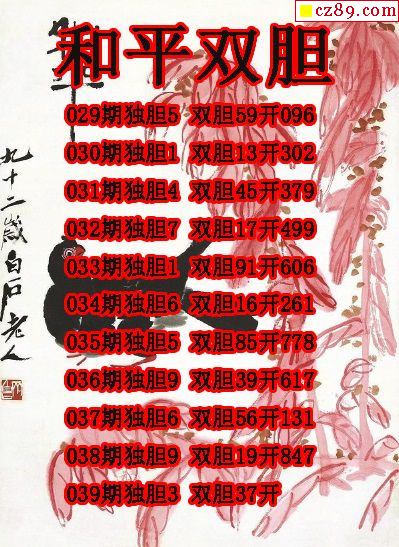 cz89.com
和平双胆
029期独胆5 双胆59开096
030期独胆1 双胆13开302
031期独胆4 双胆45开379
032期独胆7 双胆17开499
033期独胆1 双胆91开606
034期独胆6 双胆16开261
035期独胆5 双胆85开778
036期独胆9 双胆39开617
037期独胆6 双胆56开131
038期独胆9 双胆19开847
039期独胆3 双胆37开
九十二岁白石老人